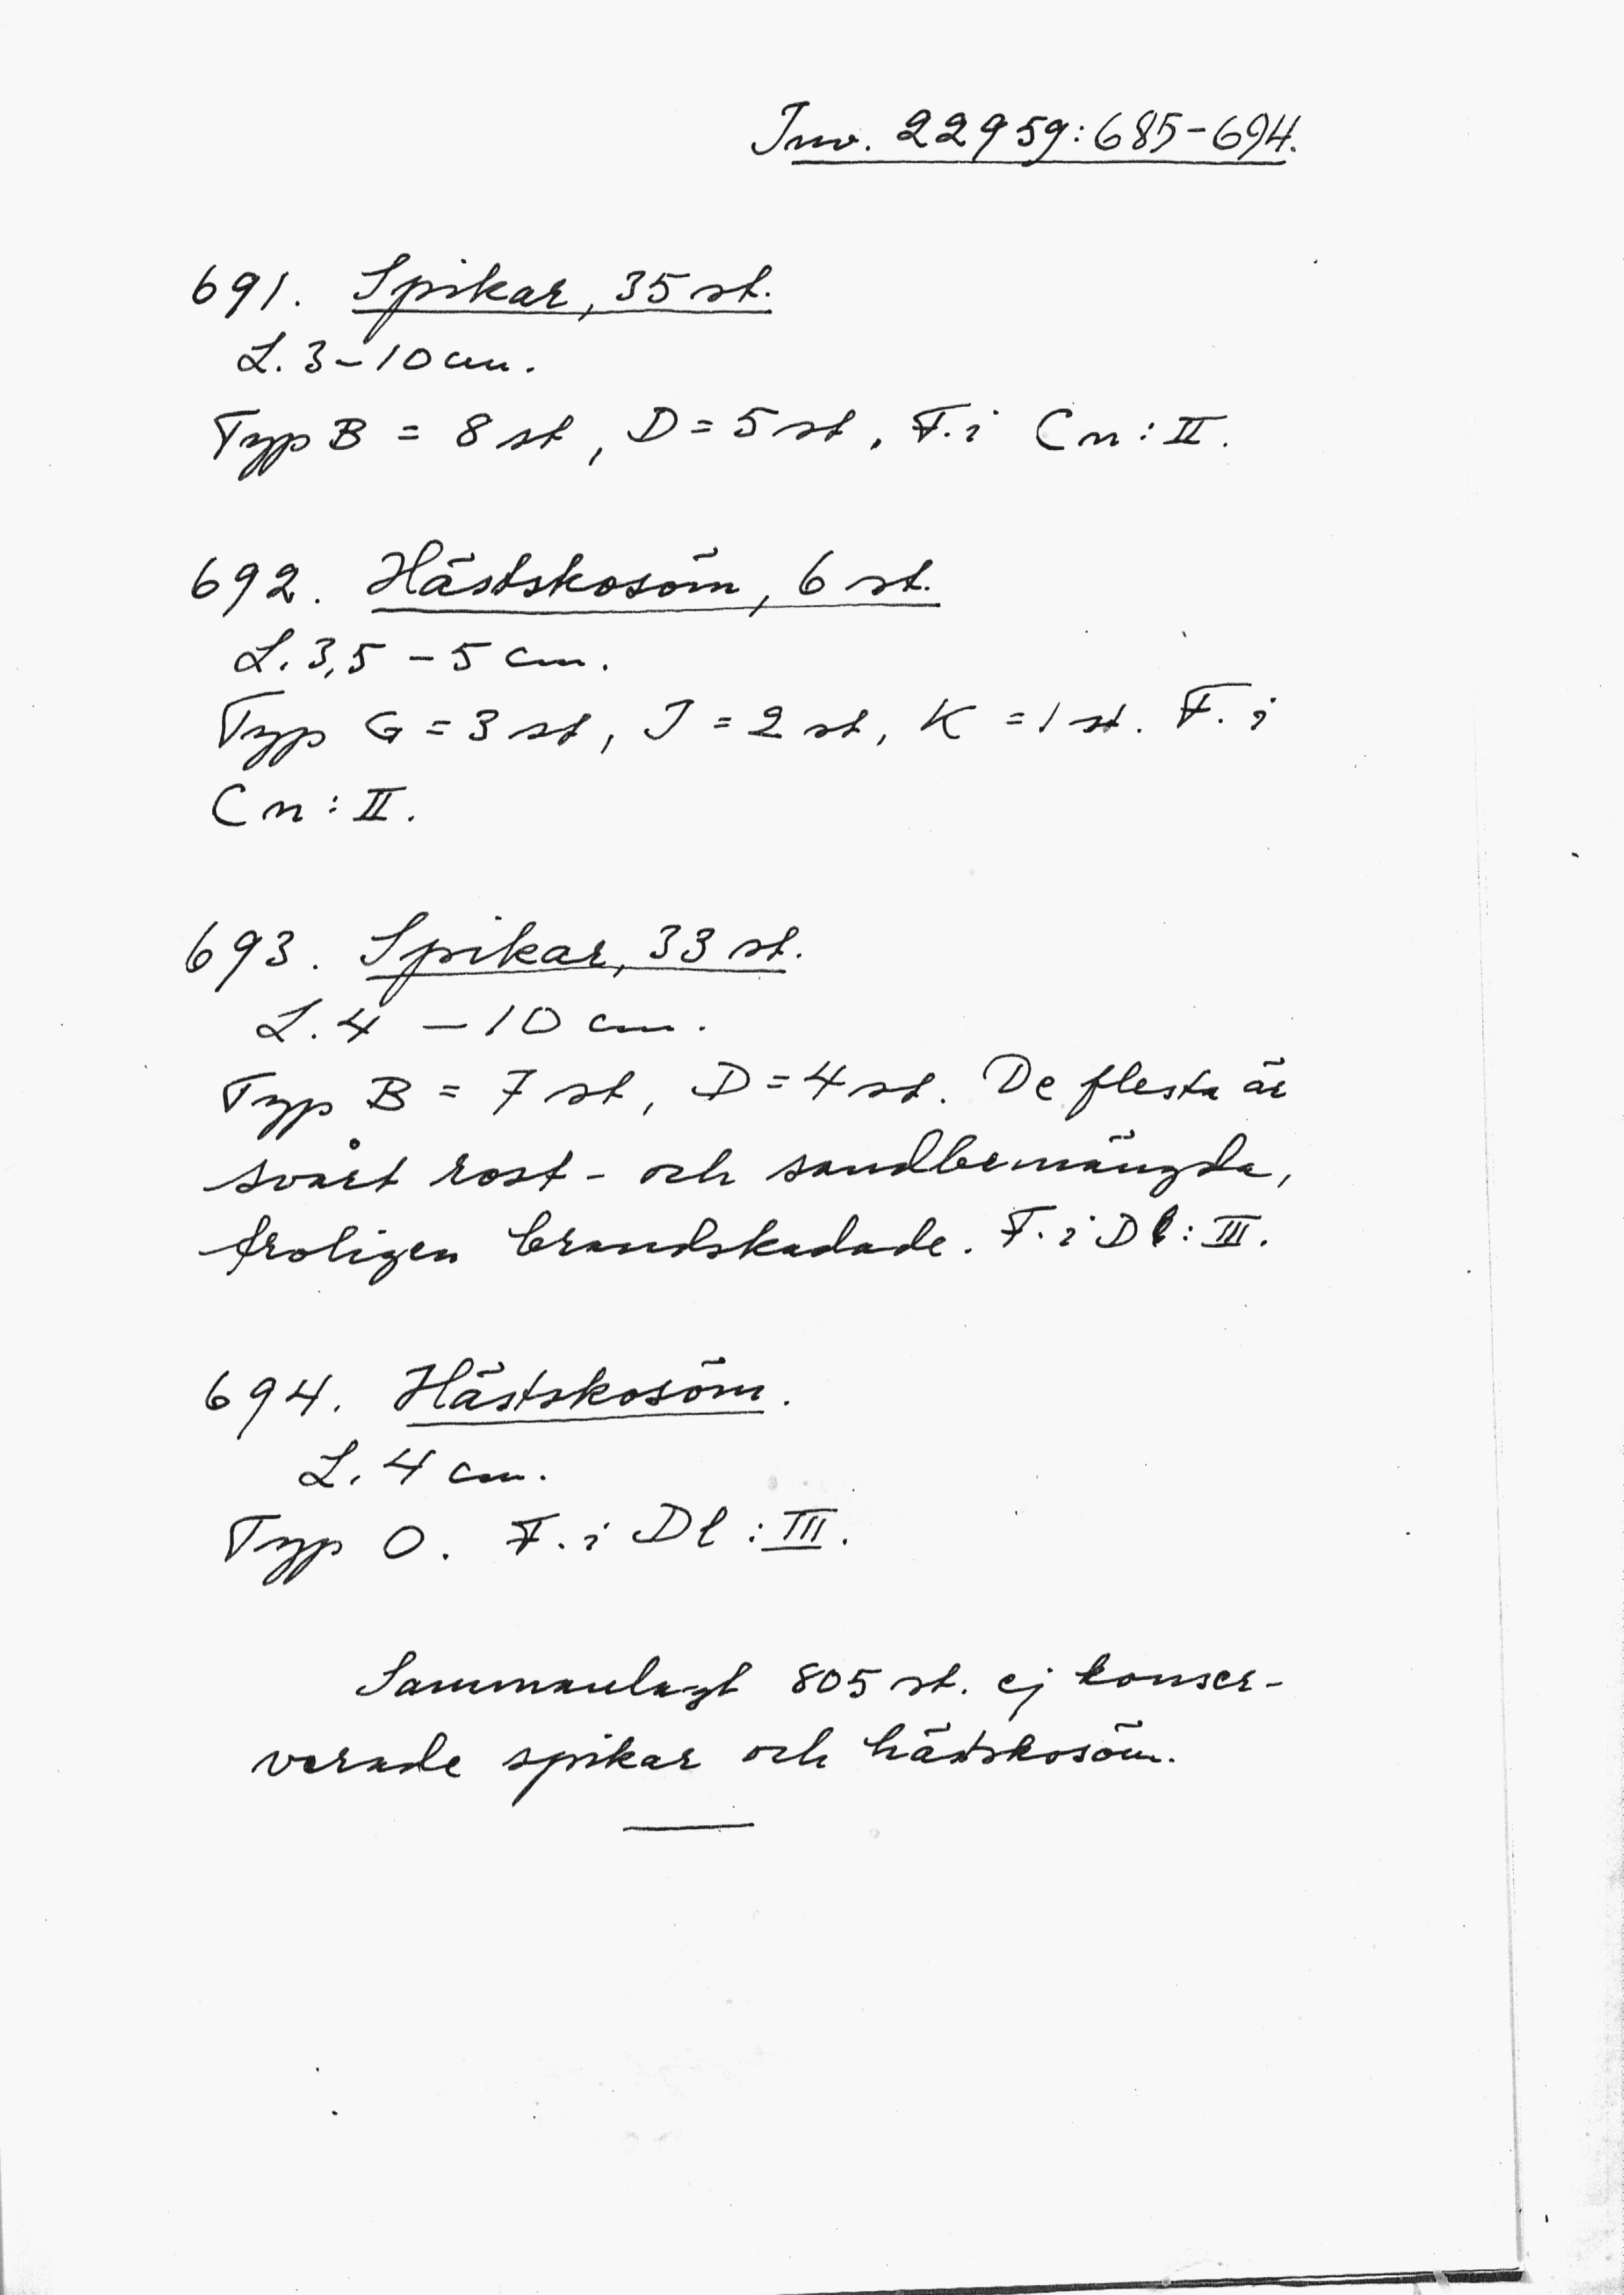 Inv. 22959:685-694.
691. Spikar, 35 st.
L. 3-10 cm.
Typ B = 8 st, D = 5 st. F. i Cn: II.
692. Hästskosöm, 6 st.
L. 3,5 - 5 cm.
Typ G = 3 st, J = 2 st, K = 1 st. F. i
Cn: II.
693. Spikar, 33 st.
L. 4 - 10 cm.
Typ B = 7 st, D = 4 st. De flesta är
svårt rost- och sandbemängda,
troligen brandskadade. F. i Dl: III.
694. Hästskosöm.
L. 4 cm.
Typ O. F. i Dl: III.
Sammanlagt 805 st. ej konser-
verade spikar och hästskosöm.